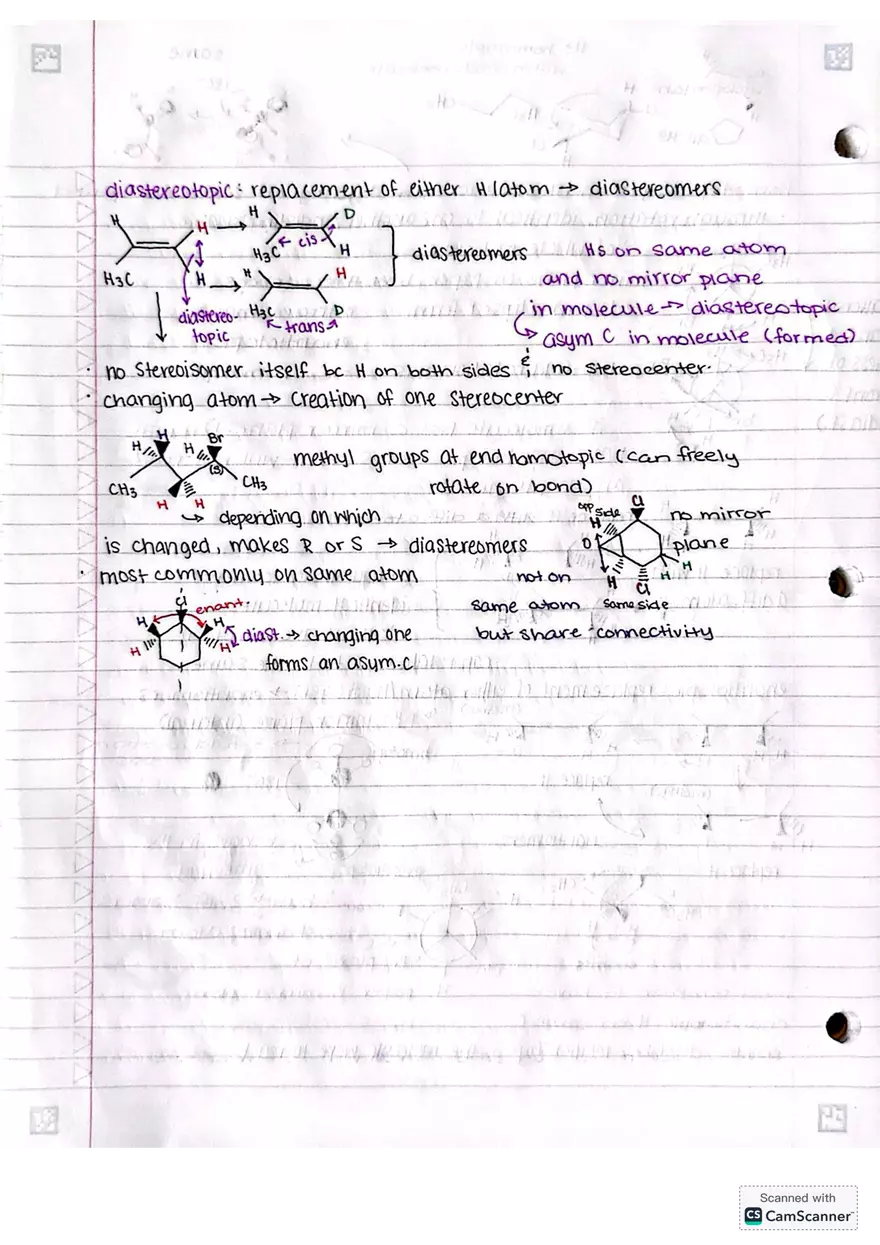 diastereotopic: replacement of either H / atom → diastereomers
H H → H D
H₃C ← cis → H
H₃C H → H H
H₃C ← trans → D
diastereo-
topic
diastereomers
Hs on same atom
and no mirror plane
in molecule → diastereotopic
↳ asym C in molecule (formed)
· no stereoisomer itself bc H on both sides & no stereocenter.
· changing atom → creation of one stereocenter
H H H Br
(S)
CH₃ CH₃
H H
methyl groups at end homotopic (can freely
rotate on bond)
↳ depending on which
is changed, makes R or S → diastereomers
· most commonly on same atom
opp side Cl
H
O
H H H
Cl
same side
no mirror
plane
not on
same atom
but share connectivity
Cl enant.
H H
H H
diast. → changing one
forms an asym. C
Scanned with
CS CamScanner